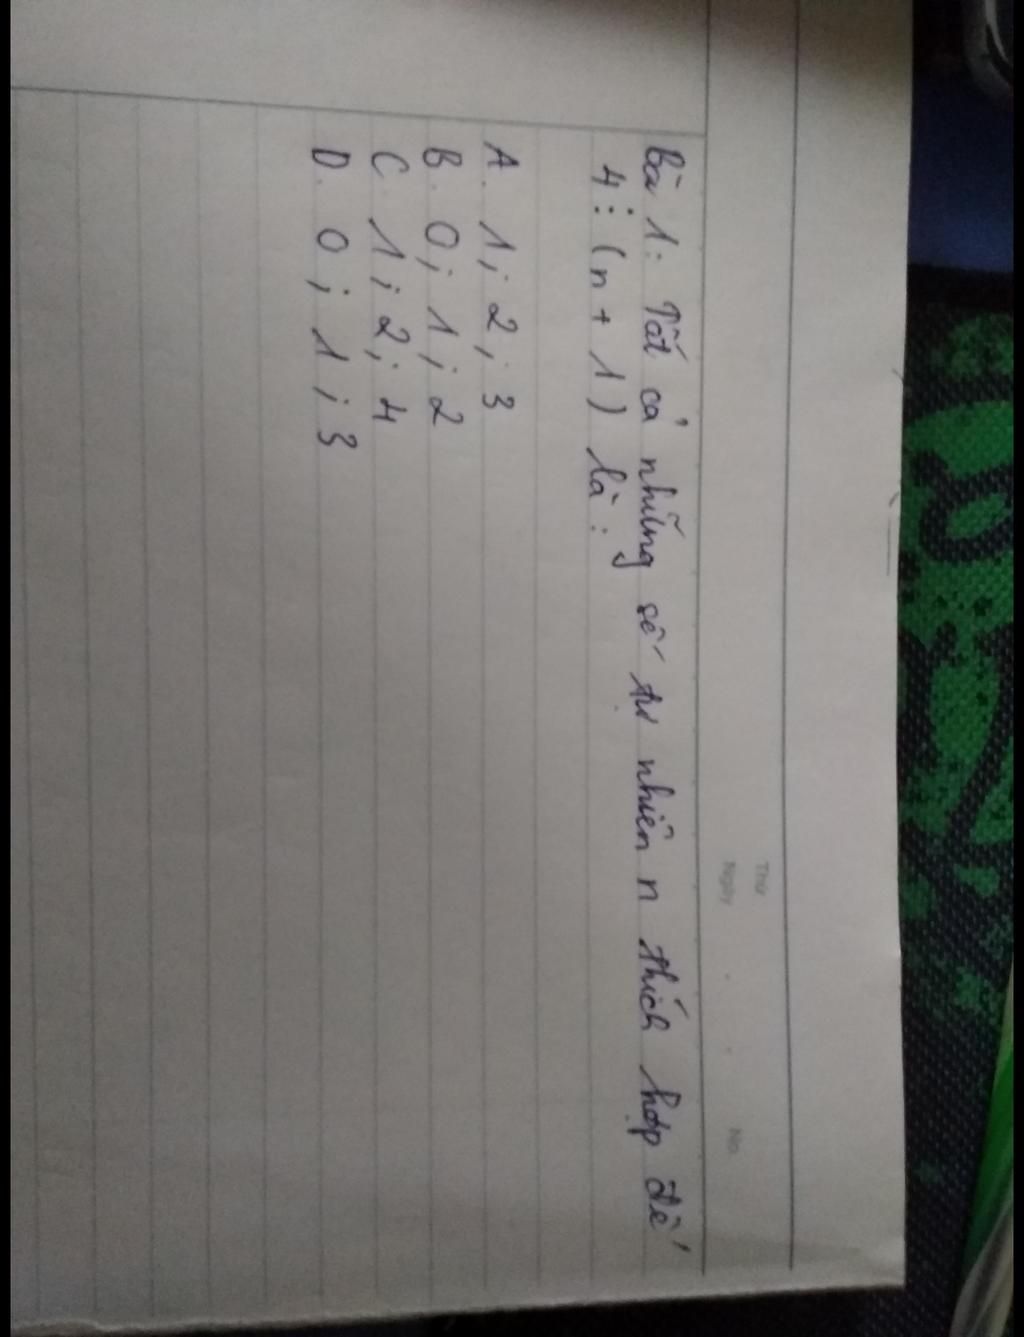 Thứ
Ngày . . No.
Bài 1: Tất cả những số tự nhiên n thích hợp để
4 ⋮ (n + 1) là:
A. 1; 2; 3
B. 0; 1; 2
C. 1; 2; 4
D. 0; 1; 3